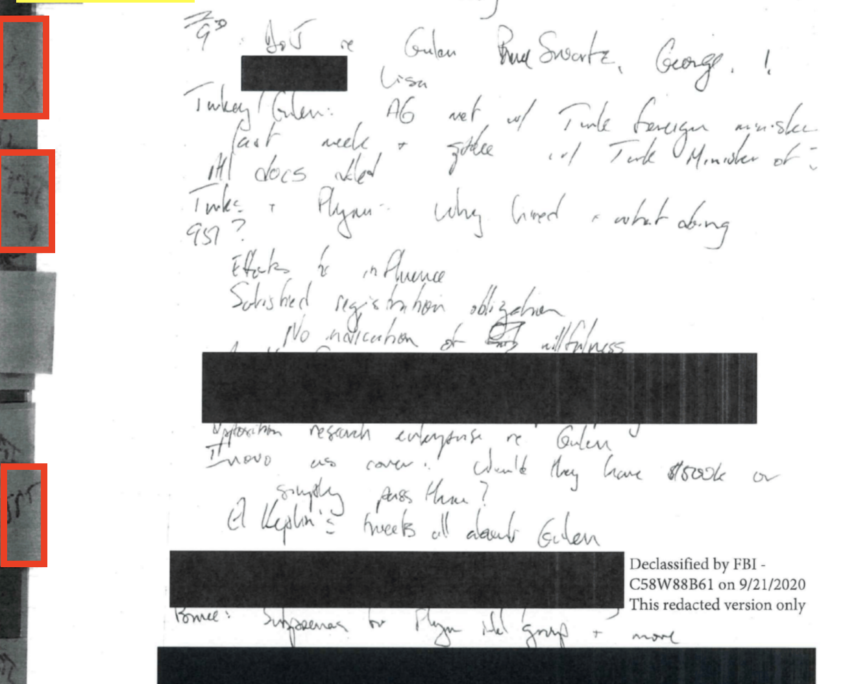 DoJ re Gulen Bruce Swartz, George, !
Lisa
Turkey/Gulen: AG met w/ Turk foreign minister
last week + w/ Turk Minister of
All docs
Turks + Flynn: why hired + what doing
951?
Efforts to influence
Satisfied registration obligation
No indication of willfulness
Opposition research enterprise re Gulen
Inovo as cover: Would they have $500k or
simply pass thru?
tweets all about Gulen
Declassified by FBI -
C58W88B61 on 9/21/2020
This redacted version only
Bruce: Subpoenas for Flynn Intel group + more